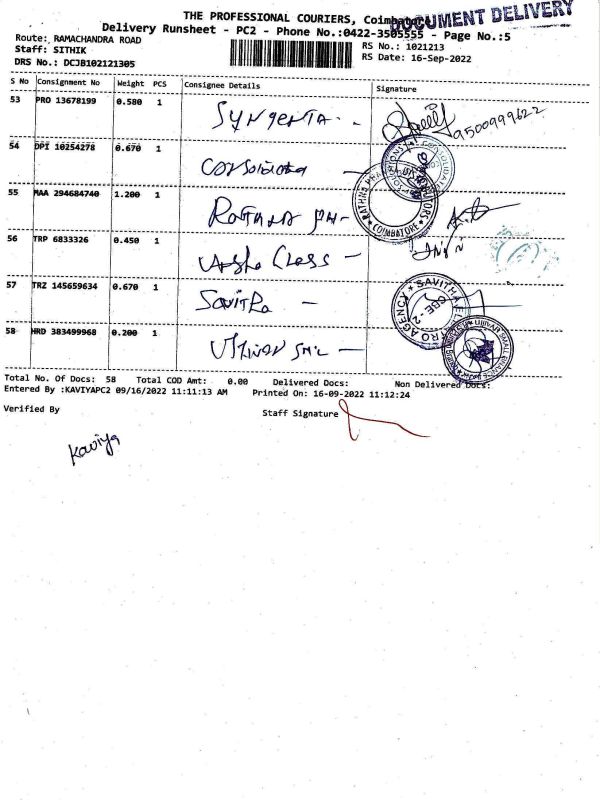 THE PROFESSIONAL COURIERS, Coimbatore
DOCUMENT DELIVERY
Delivery Runsheet - PC2 - Phone No.:0422-3505555 - Page No.:5
Route: RAMACHANDRA ROAD
RS No.: 1021213
Staff: SITHIK
RS Date: 16-Sep-2022
DRS No.: DCJB102121305
S No Consignment No Weight PCS Consignee Details Signature
53 PRO 13678199 0.580 1 Syngenta
9500999622
54 DPI 10254278 0.670 1
55 MAA 294684740 1.200 1
RATHNA
COIMBATORE
56 TRP 6833326 0.450 1 Class
57 TRZ 145659634 0.670 1 Savitha
SAVITHA AGRO AGENCY CBE-2
58 HRD 383499968 0.200 1
UJJIVAN SMALL FINANCE BANK
Total No. Of Docs: 58 Total COD Amt: 0.00 Delivered Docs: Non Delivered Docs:
Entered By :KAVIYAPC2 09/16/2022 11:11:13 AM Printed On: 16-09-2022 11:12:24
Verified By Staff Signature
Kaviya